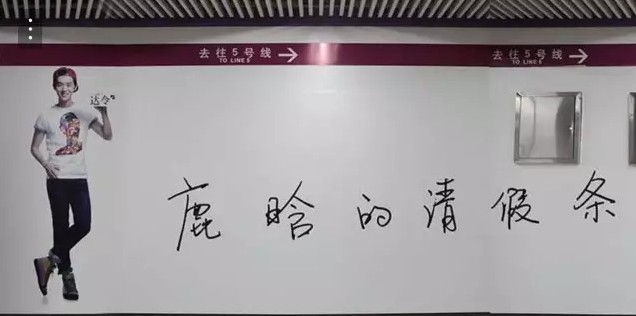 去往5号线 去往5号线
TO LINE 5 TO LINE 5
鹿晗的请假条